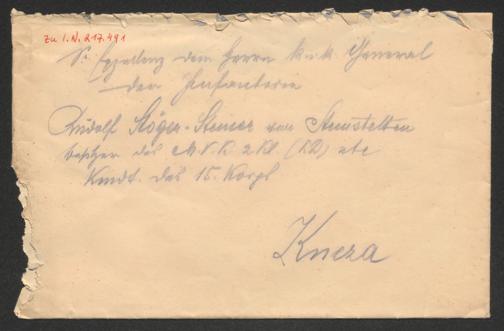 Zu I.N. 217.491
Sr. Exzellenz dem Herrn k.u.k. General
der Infanterie
Rudolf Stöger-Steiner von Steinstätten
Besitzer des M.V.K. 2. Kl. (KD) etc
Kmdt. des 15. Korps
Kneza